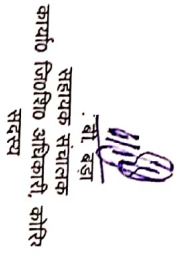 बी. बड़ा
सहायक संचालक
कार्या० जि०शि० अधिकारी, कोरिर
सदस्य